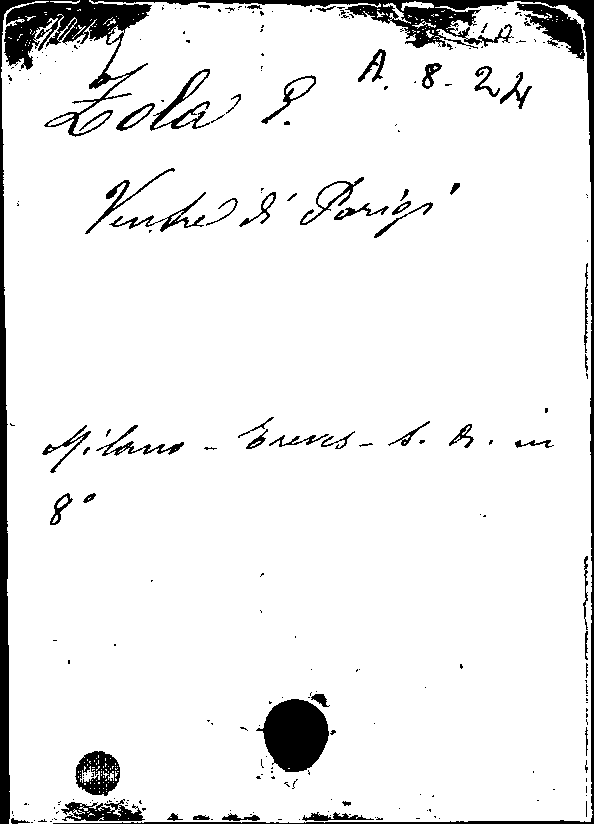 A. 8. 24
Zola E.
Ventre di Parigi
Milano - Treves - s. a. in
8°